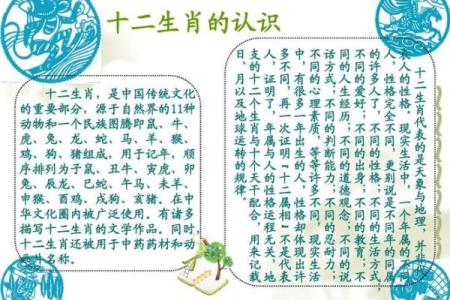 十二生肖的认识
十二生肖，是中国传统文化
的重要部分，源于自然界的11种
动物和一个民族图腾即鼠、牛、
虎、兔、龙、蛇、马、羊、猴、
鸡、狗、猪组成，用于记年，顺
序排列为子鼠、丑牛、寅虎、卯
兔、辰龙、巳蛇、午马、未羊、
申猴、酉鸡、戌狗、亥猪。在中
华文化圈内被广泛使用。有诸多
描写十二生肖的文学作品。同时，
十二生肖还被用于中药药材和动
名称。
十二生肖代表的是天象与地理，并
人的性格，现实生活中，一个年属的
人，性格完全不同，更别说是不同年属
的许多人了，不同的性格，不同的生活方式，
不同的人生经历，不同的教育，不
同的生活方式，不同的道德观念，不同的
话方式，不同的判断能力，不同的忍耐力，
不同的心理素质，等等许多不同。现实生活
中，有很多一年出生的人，性格却体现出许
多不同，再一次证明《十二属相》不是代表
人，证明了，年属与人的性格运程无关，地
支的十二个生肖与十个天干配合，用来记载
日、月以及地球运转的规律。